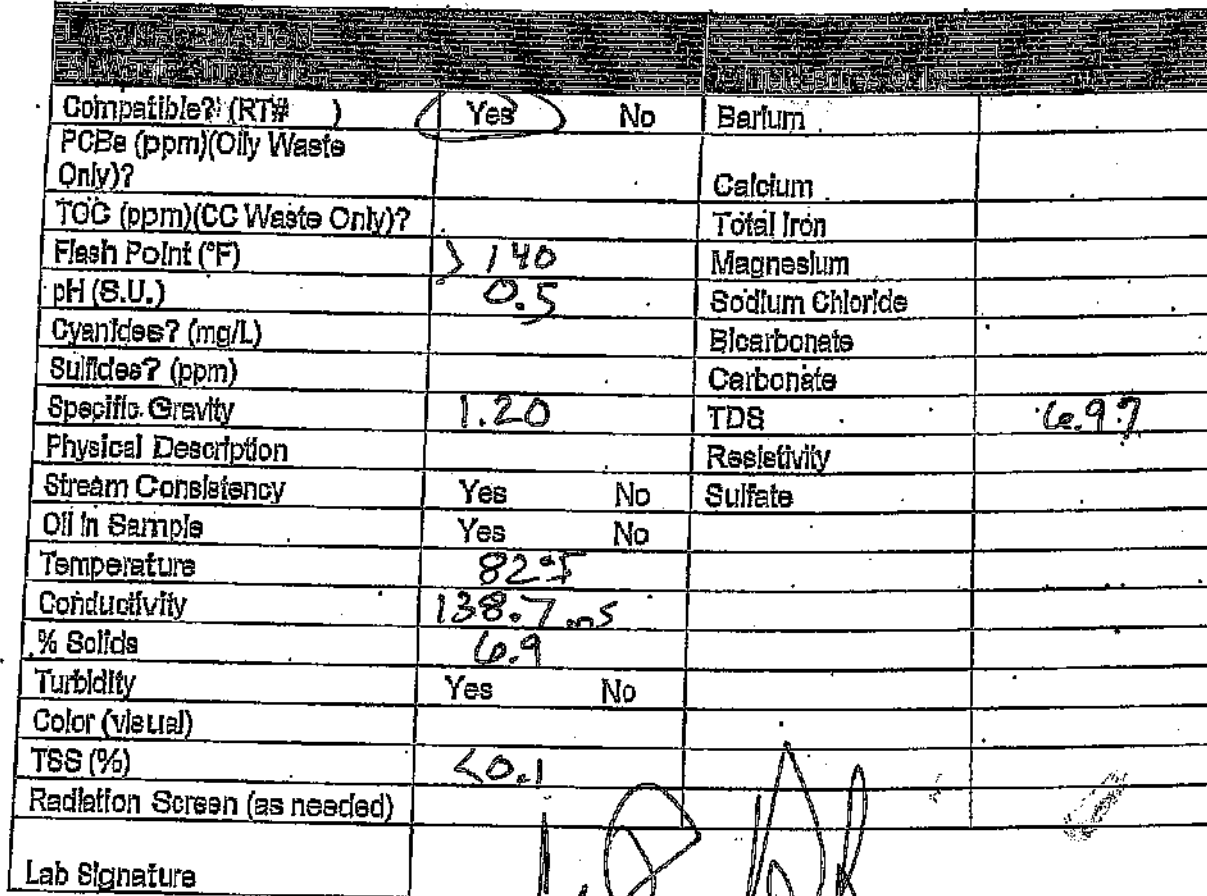 LAB INFORMATION
Compatible? (RT# ) Yes No Barium
PCBs (ppm)(Oily Waste
Only)? Calcium
TOC (ppm)(CC Waste Only)? Total Iron
Flash Point (°F) >140 Magnesium
pH (S.U.) 0.5 Sodium Chloride
Cyanides? (mg/L) Bicarbonate
Sulfides? (ppm) Carbonate
Specific Gravity 1.20 TDS 6.97
Physical Description Resistivity
Stream Consistency Yes No Sulfate
Oil in Sample Yes No
Temperature 82°F
Conductivity 138.7 ms
% Solids 6.9
Turbidity Yes No
Color (visual)
TSS (%) <0.1
Radiation Screen (as needed)
Lab Signature